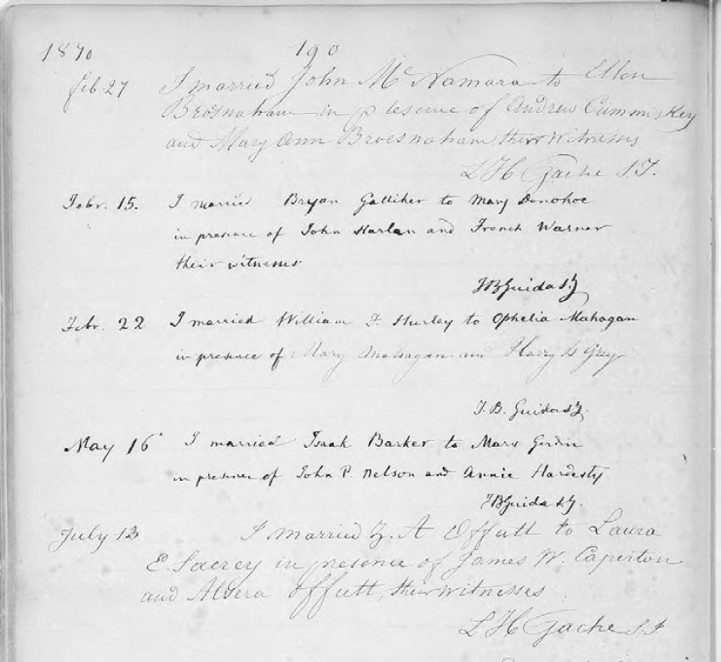 1870 190
Feb 27 I married John McNamara to Ellen
Brosnaham in presence of Andrew Cummiskey
and Mary Ann Broesnaham their witnesses
L H Gache S.J.
Febr. 15. I married Bryan Galliher to Mary Donohoe
in presence of John Harlan and French Warner
their witnesses
J B Guida S.J.
Febr. 22 I married William F. Hurley to Ophelia Mahagan
in presence of Mary Mahagan and Harry Grey
J. B. Guida S.J.
May 16 I married Barker to Mary
in presence of John P. Nelson and Annie Hardesty
J B Guida S.J.
July 13 I married A Offutt to Laura
E. Sacrey in presence of James W. Caperton
and Offutt, their witnesses
L H Gache S.J.